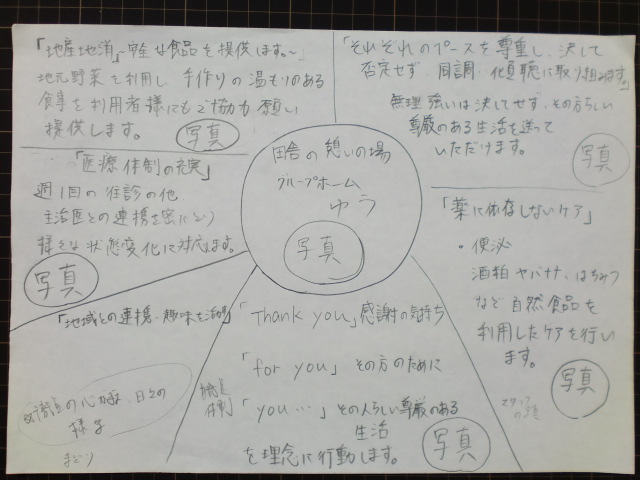 「地産地消」~安全な食品を提供します。~
地元野菜を利用し 手作りの温もりのある
食事を利用者様にもご協力願い
提供します。
写真
「それぞれのペースを尊重し、決して
否定せず、同調、傾聴に取り組みます。」
無理強いは決してせず、その方らしい
尊厳のある生活を送って
いただけます。
写真
「医療体制の充実」
週1回の往診の他、
主治医との連携を密にとり
様々な状態変化に対応します。
写真
田舎の憩いの場
グループホーム
ゆう
写真
「薬に依存しないケア」
・便泌
酒粕やバナナ、はちみつ
など自然食品を
利用したケアを行い
ます。
写真
スタッフ
の写真
「地域との連携、趣味を活動」
の心極、日々の
様子
「Thank you」感謝の気持ち
「for you」その方のために
「you…」その人らしい尊厳のある
生活
を理念に行動します。
写真